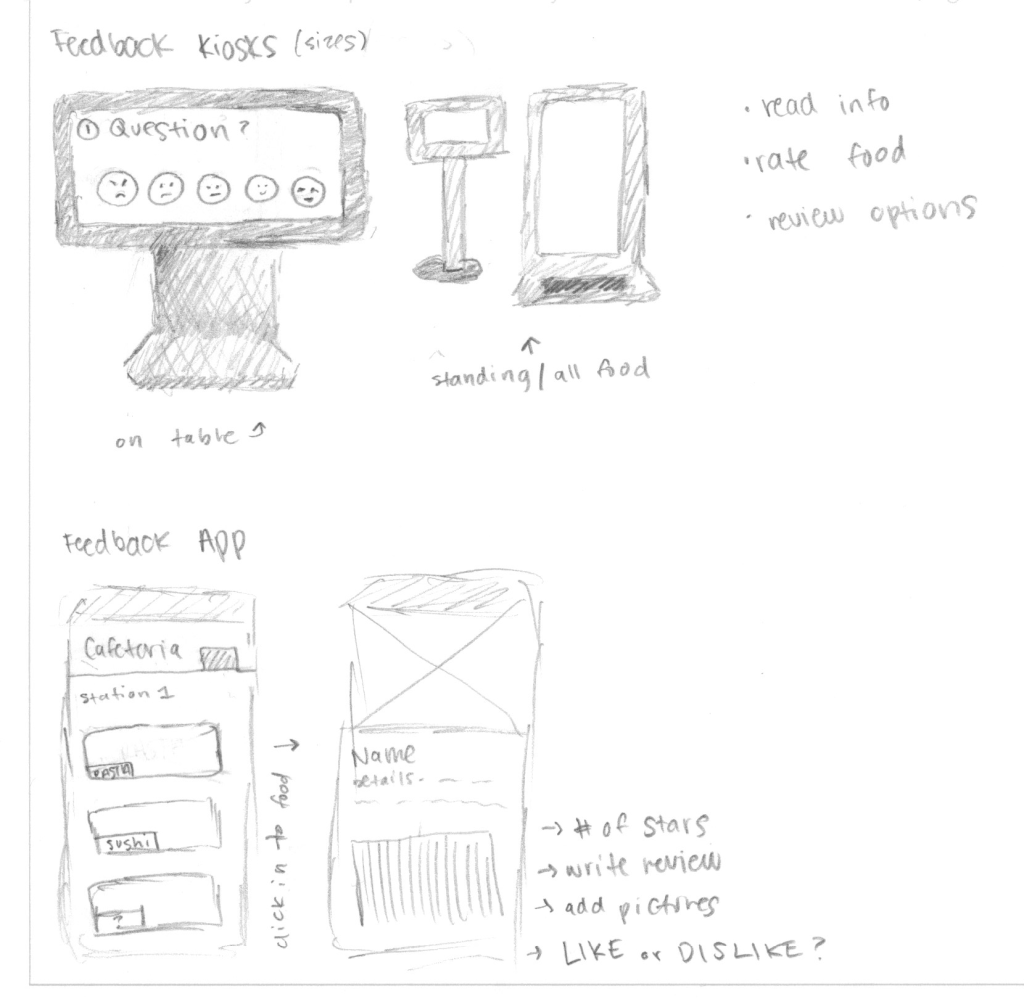 Feedback Kiosks (sizes)
① Question?
• read info
• rate food
• review options
standing / all food
on table
Feedback App
Cafeteria
Station 1
PASTA
sushi
?
click in to food
Name
Details.
# of stars
write review
add pictures
LIKE or DISLIKE?